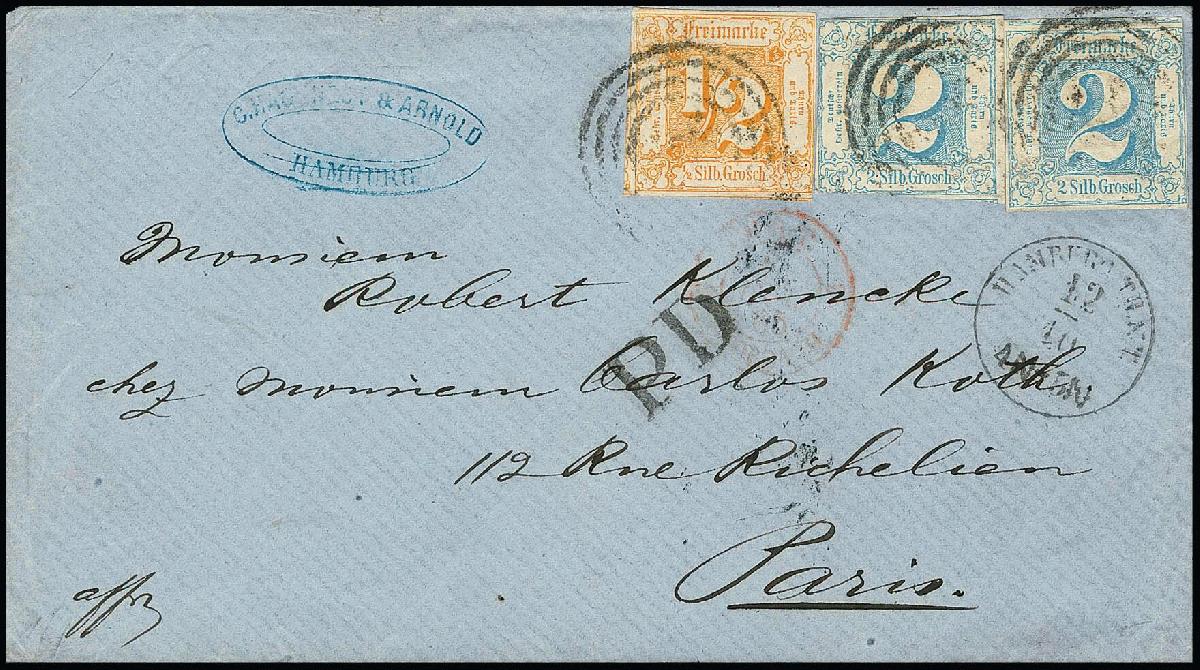 & ARNOLD
HAMBURG
Freimarke
1/2
½ Silb. Grosch
Freimarke
2
2 Silb. Grosch
Freimarke
2
2 Silb. Grosch
Monsieur
Robert Klencke
chez Monsieur Carlos Koth
112 Rue Richelieu
Paris.
PD
HAMBURG TH.&T.
12
10
affr